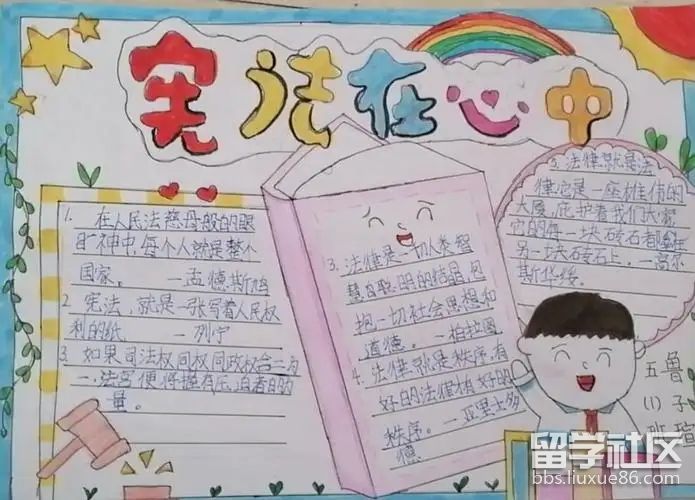 宪法在心中
1. 在人民法慈母般的眼
神中，每个人就是整个
国家。 —孟德斯鸠
2. 宪法，就是一张写着人民权
利的纸。 —列宁
3. 如果司法权同行政权合二为
一，法官便将握有压迫者的
量。
3. 法律是一切人类智
慧聪明的结晶，包
括一切社会思想和
道德。 —柏拉图
4. 法律就是秩序，有
好的法律有好的
秩序。 —亚里士多
德
5. 法律就是法
律，它是一座雄伟的
大厦，庇护着我们大家
它的每一块砖石都垒在
另一块砖石上。 —高尔
斯华绥
五(1)班
鲁子瑄
留学社区
bbs.liuxue86.com